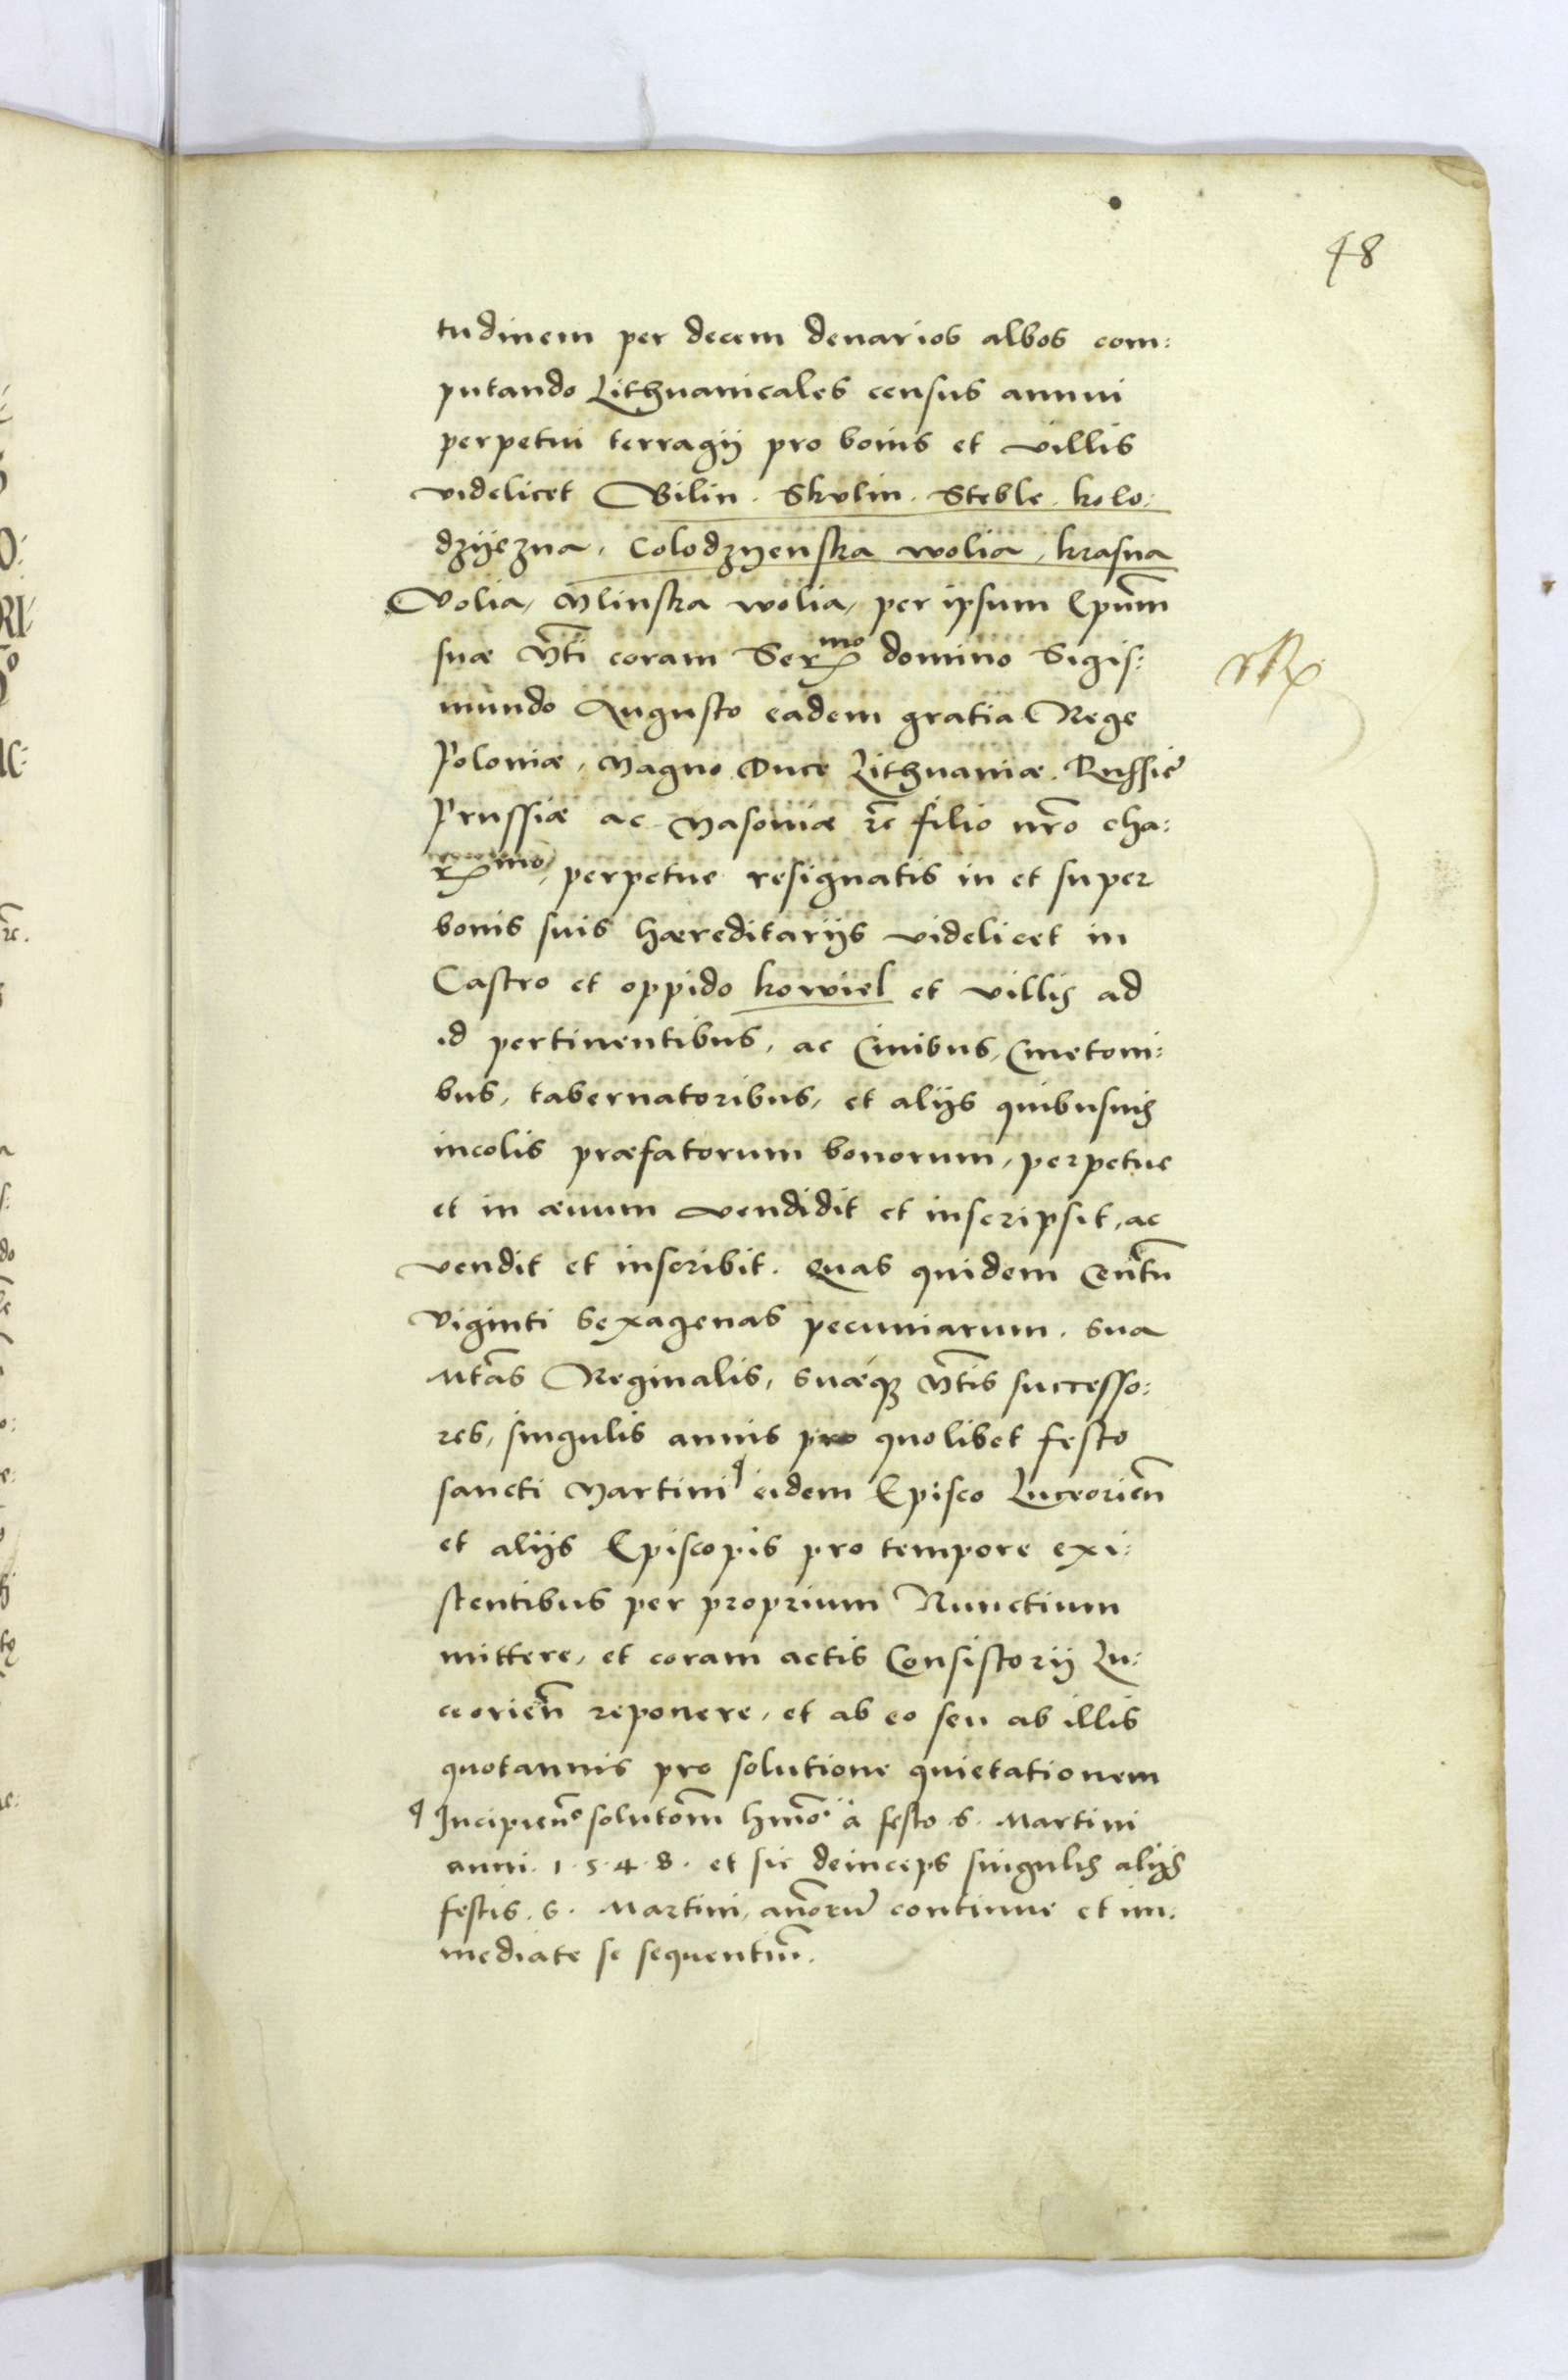 48
tudinem per decem denarios albos com:
putando Lithuanicales census annui
perpetui terragij pro bonis et villis
videlicet Bilin. Skulin. Steble. kolo:
dzyezna, Colodzyenska wolia, krasna
Volia, Mlinska wolia, per ipsum Epūm
suæ Mti coram Sermo domino Sigis:
mundo Augusto eadem gratia Rege
Poloniæ, Magno Duce Lithuaniæ. Russiæ
Prussiæ ac Masoviæ rc filio nro cha:
rmo, perpetue resignatis in et super
bonis suis hæreditarijs videlicet in
Castro et oppido kowiel et villis ad
id pertinentibus, ac Civibus, Cmetoni:
bus, tabernatoribus, et alijs quibusvis
incolis præfatorum bonorum, perpetue
et in ævum vendidit et inscripsit, ac
vendit et inscribit. Quas quidem Centū
viginti sexagenas pecuniarum. sua
Mtas Reginalis, suæq; Mtis successo:
res, singulis annis pro quolibet festo
sancti Martini eidem Episco Luceorien
et alijs Episcopis pro tempore exi:
stentibus per proprium Nunctium
mittere, et coram actis Consistorij Lu:
ceorien reponere, et ab eo seu ab illis
quotannis pro solutione quietationem
Incipiens solutom hmoi à festo s. Martini
anni. 1.5.4.8. et sic deinceps singulis alijs
festis. s. Martini, anorū continue et im:
mediate se sequentiū.